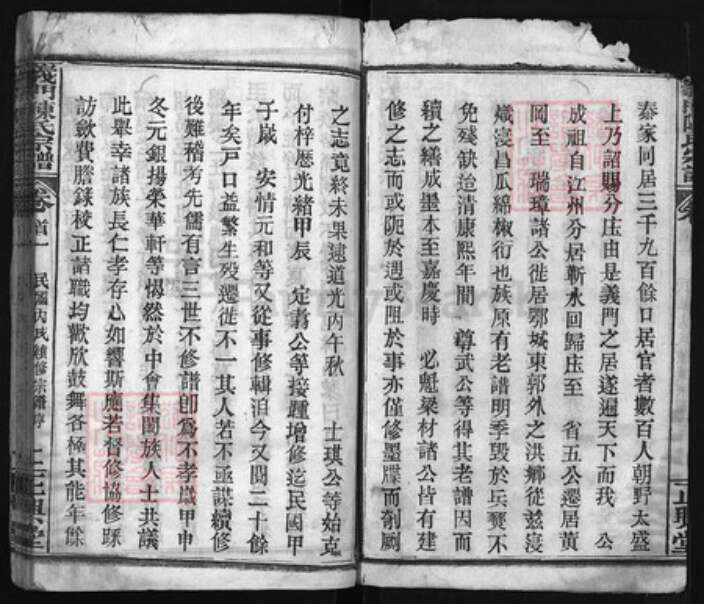 泰家同居三千九百餘口居官者數百人朝野太盛
上乃詔賜分庄由是義門之居遂遍天下而我　公
成祖自江州分居蘄水回歸庄至　省五公遷居黃
岡至　瑞璋諸公徙居鄂城東郭外之洪鄉從茲寖
熾寖昌瓜綿椒衍也族原有老譜明季毀於兵燹不
免殘缺迨清康熙年間　尊武公等得其老譜因而
續之繕成墨本至嘉慶時　必魁梁材諸公皆有建
修之志而或阨於遇或阻於事亦僅修墨牒而剞劂
之志竟終未果逮道光丙午秋　士琪公等始克
付梓歷光緒甲辰　定翥公等接踵增修迄民國甲
子歲　安情元和等又從事修輯洎今又閱二十餘
年矣戸口益繁生歿遷徙不一其人若不亟謀續修
後難稽考先儒有言三世不修譜卽爲不孝歲甲申
冬元銀揚榮華軒等惕然於中會集閤族人士共議
此舉幸諸族長仁孝存心如響斯應若督修協修躱
訪歛費膽錄校正諸職均歡欣鼓舞各極其能年餘
義門陳氏宗譜
卷首一
民國丙戌續修宗譜序
正興堂